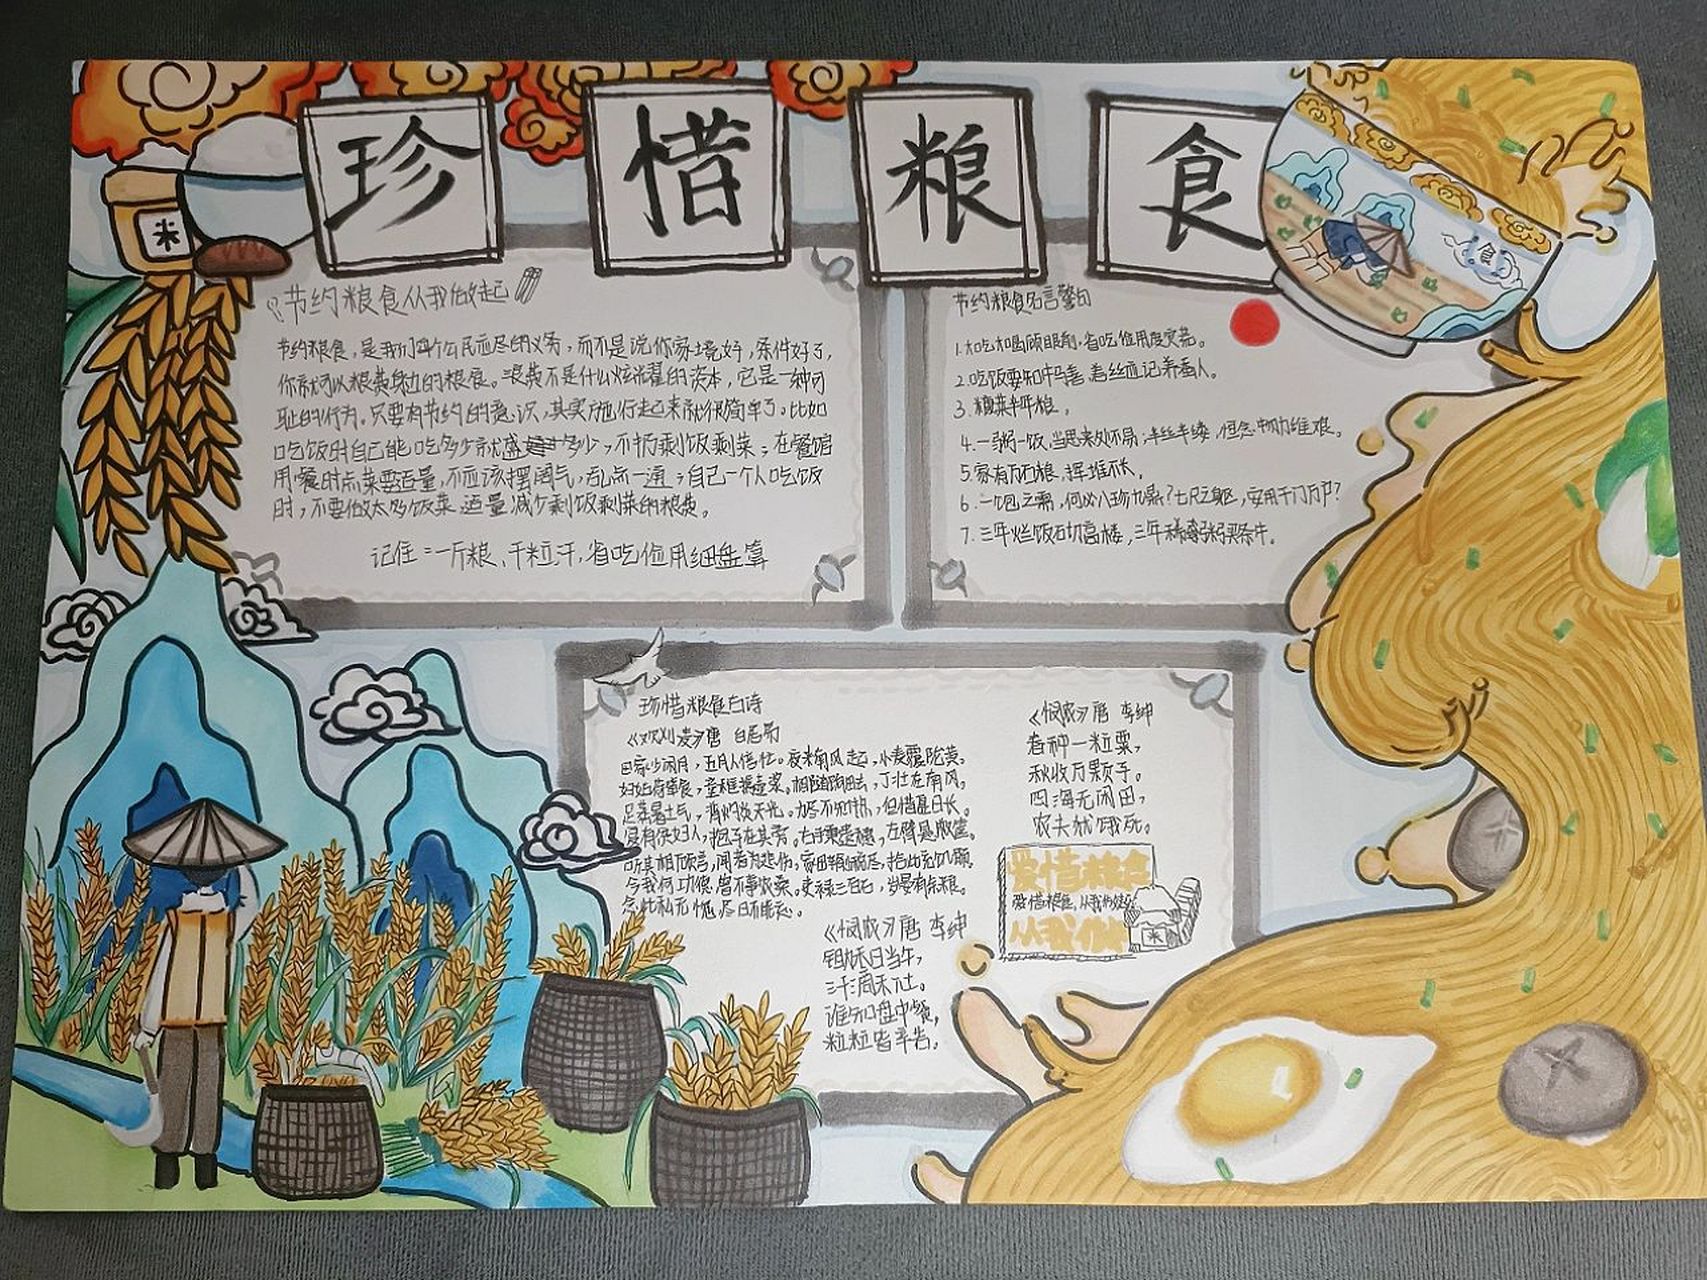 珍惜粮食
米
食
节约粮食从我做起
节约粮食,是我们每个公民应尽的义务,而不是说你家境好,条件好了,
你就可以浪费身边的粮食。浪费不是什么炫耀的资本,它是一种可
耻的行为。只要有节约的意识,其实施行起来就很简单了。比如
吃饭时自己能吃多少就盛多少,不扔剩饭剩菜;在餐馆
用餐时点菜要适量,不应该摆阔气,乱点一通;自己一个人吃饭
时,不要做太多饭菜 适量 减少剩饭剩菜的粮费。
记住:一斤粮、千粒汗,省吃俭用细盘算
节约粮食名言警句
1.大吃大喝顾眼前,省吃俭用度灾荒。
2.吃饭要知牛马善,着丝应记养蚕人。
3.糠菜半年粮。
4.一粥一饭,当思来处不易;半丝半缕,恒念物力维艰。
5.家有万石粮,挥堆不长。
6.一饱之需,何必八珍九鼎?七尺之躯,安用千门万户?
7.三年烂饭砌高楼,三年稀粥买条牛。
珍惜粮食古诗
《观刈麦》唐 白居易
田家少闲月,五月人倍忙。夜来南风起,小麦覆陇黄。
妇姑荷箪食,童稚携壶浆。相随饷田去,丁壮在南风。
足蒸暑土气,背灼炎天光。力尽不知热,但惜夏日长。
复有贫妇人,抱子在其旁。右手秉遗穗,左臂悬敝筐。
听其相顾言,闻者为悲伤。家田输税尽,拾此充饥肠。
今我何功德,曾不事农桑。吏禄三百石,岁晏有余粮。
念此私自愧,尽日不能忘。
《悯农》唐 李绅
春种一粒粟,
秋收万颗子。
四海无闲田,
农夫犹饿死。
爱惜粮食
爱惜粮食,从我做起
从我做
米
《悯农》唐 李绅
锄禾日当午,
汗滴禾下土。
谁知盘中餐,
粒粒皆辛苦。